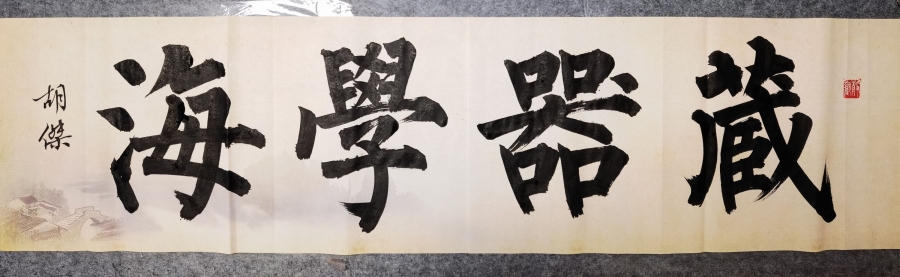 藏器學海
胡傑